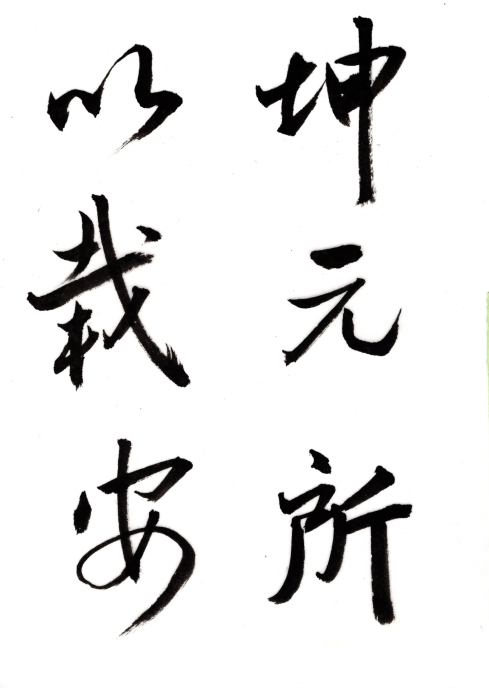 坤元所
以栽安